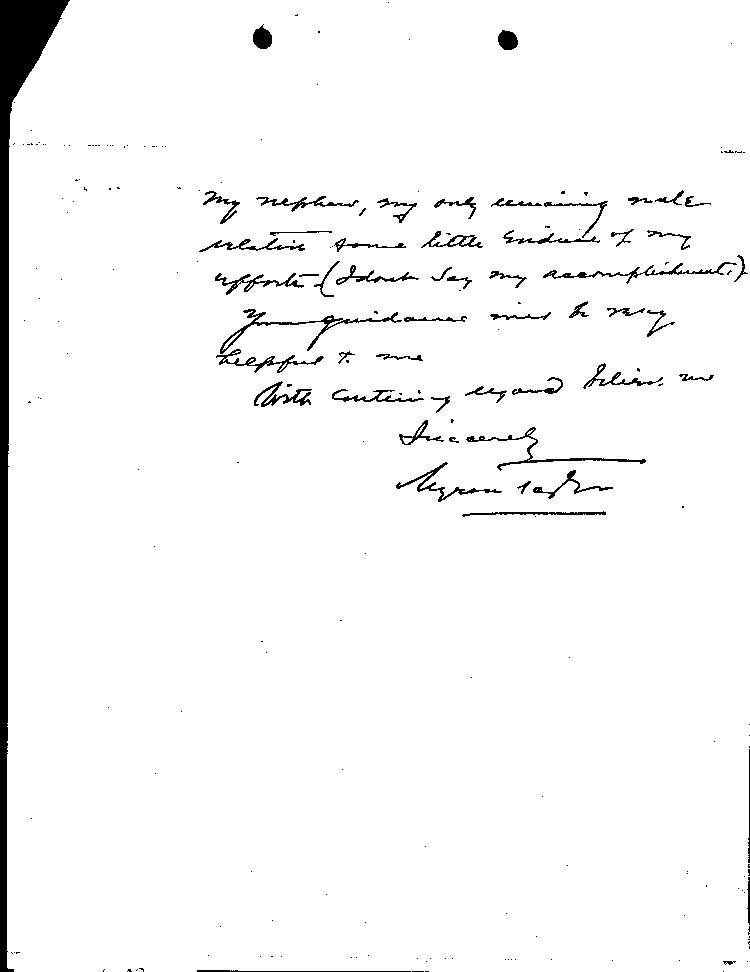 my nephew, my only remaining male
relative some little evidence of my
efforts - (I dont say my accomplishments.)
Your guidance will be very
helpful to me
With continuing regard believe me
Sincerely
Myron Taylor